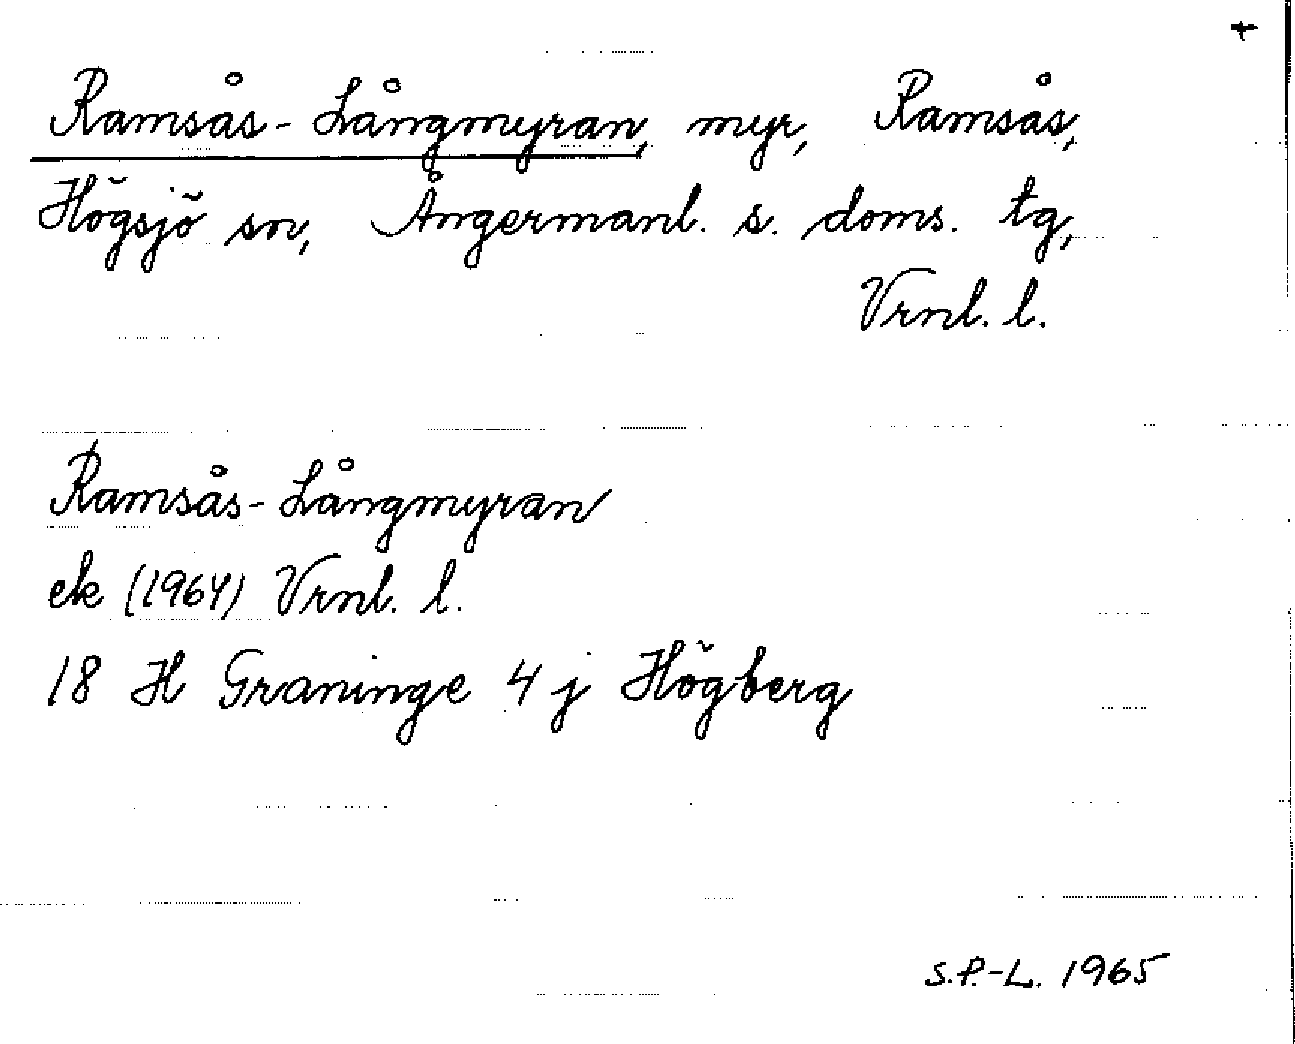 +
Ramsås-Långmyran, myr, Ramsås,
Högsjö sn, Ångermanl. s. doms. tg,
Vrnl. l.
Ramsås-Långmyran
ek (1964) Vrnl. l.
18 H Graninge 4 j Högberg
S.P.-L. 1965